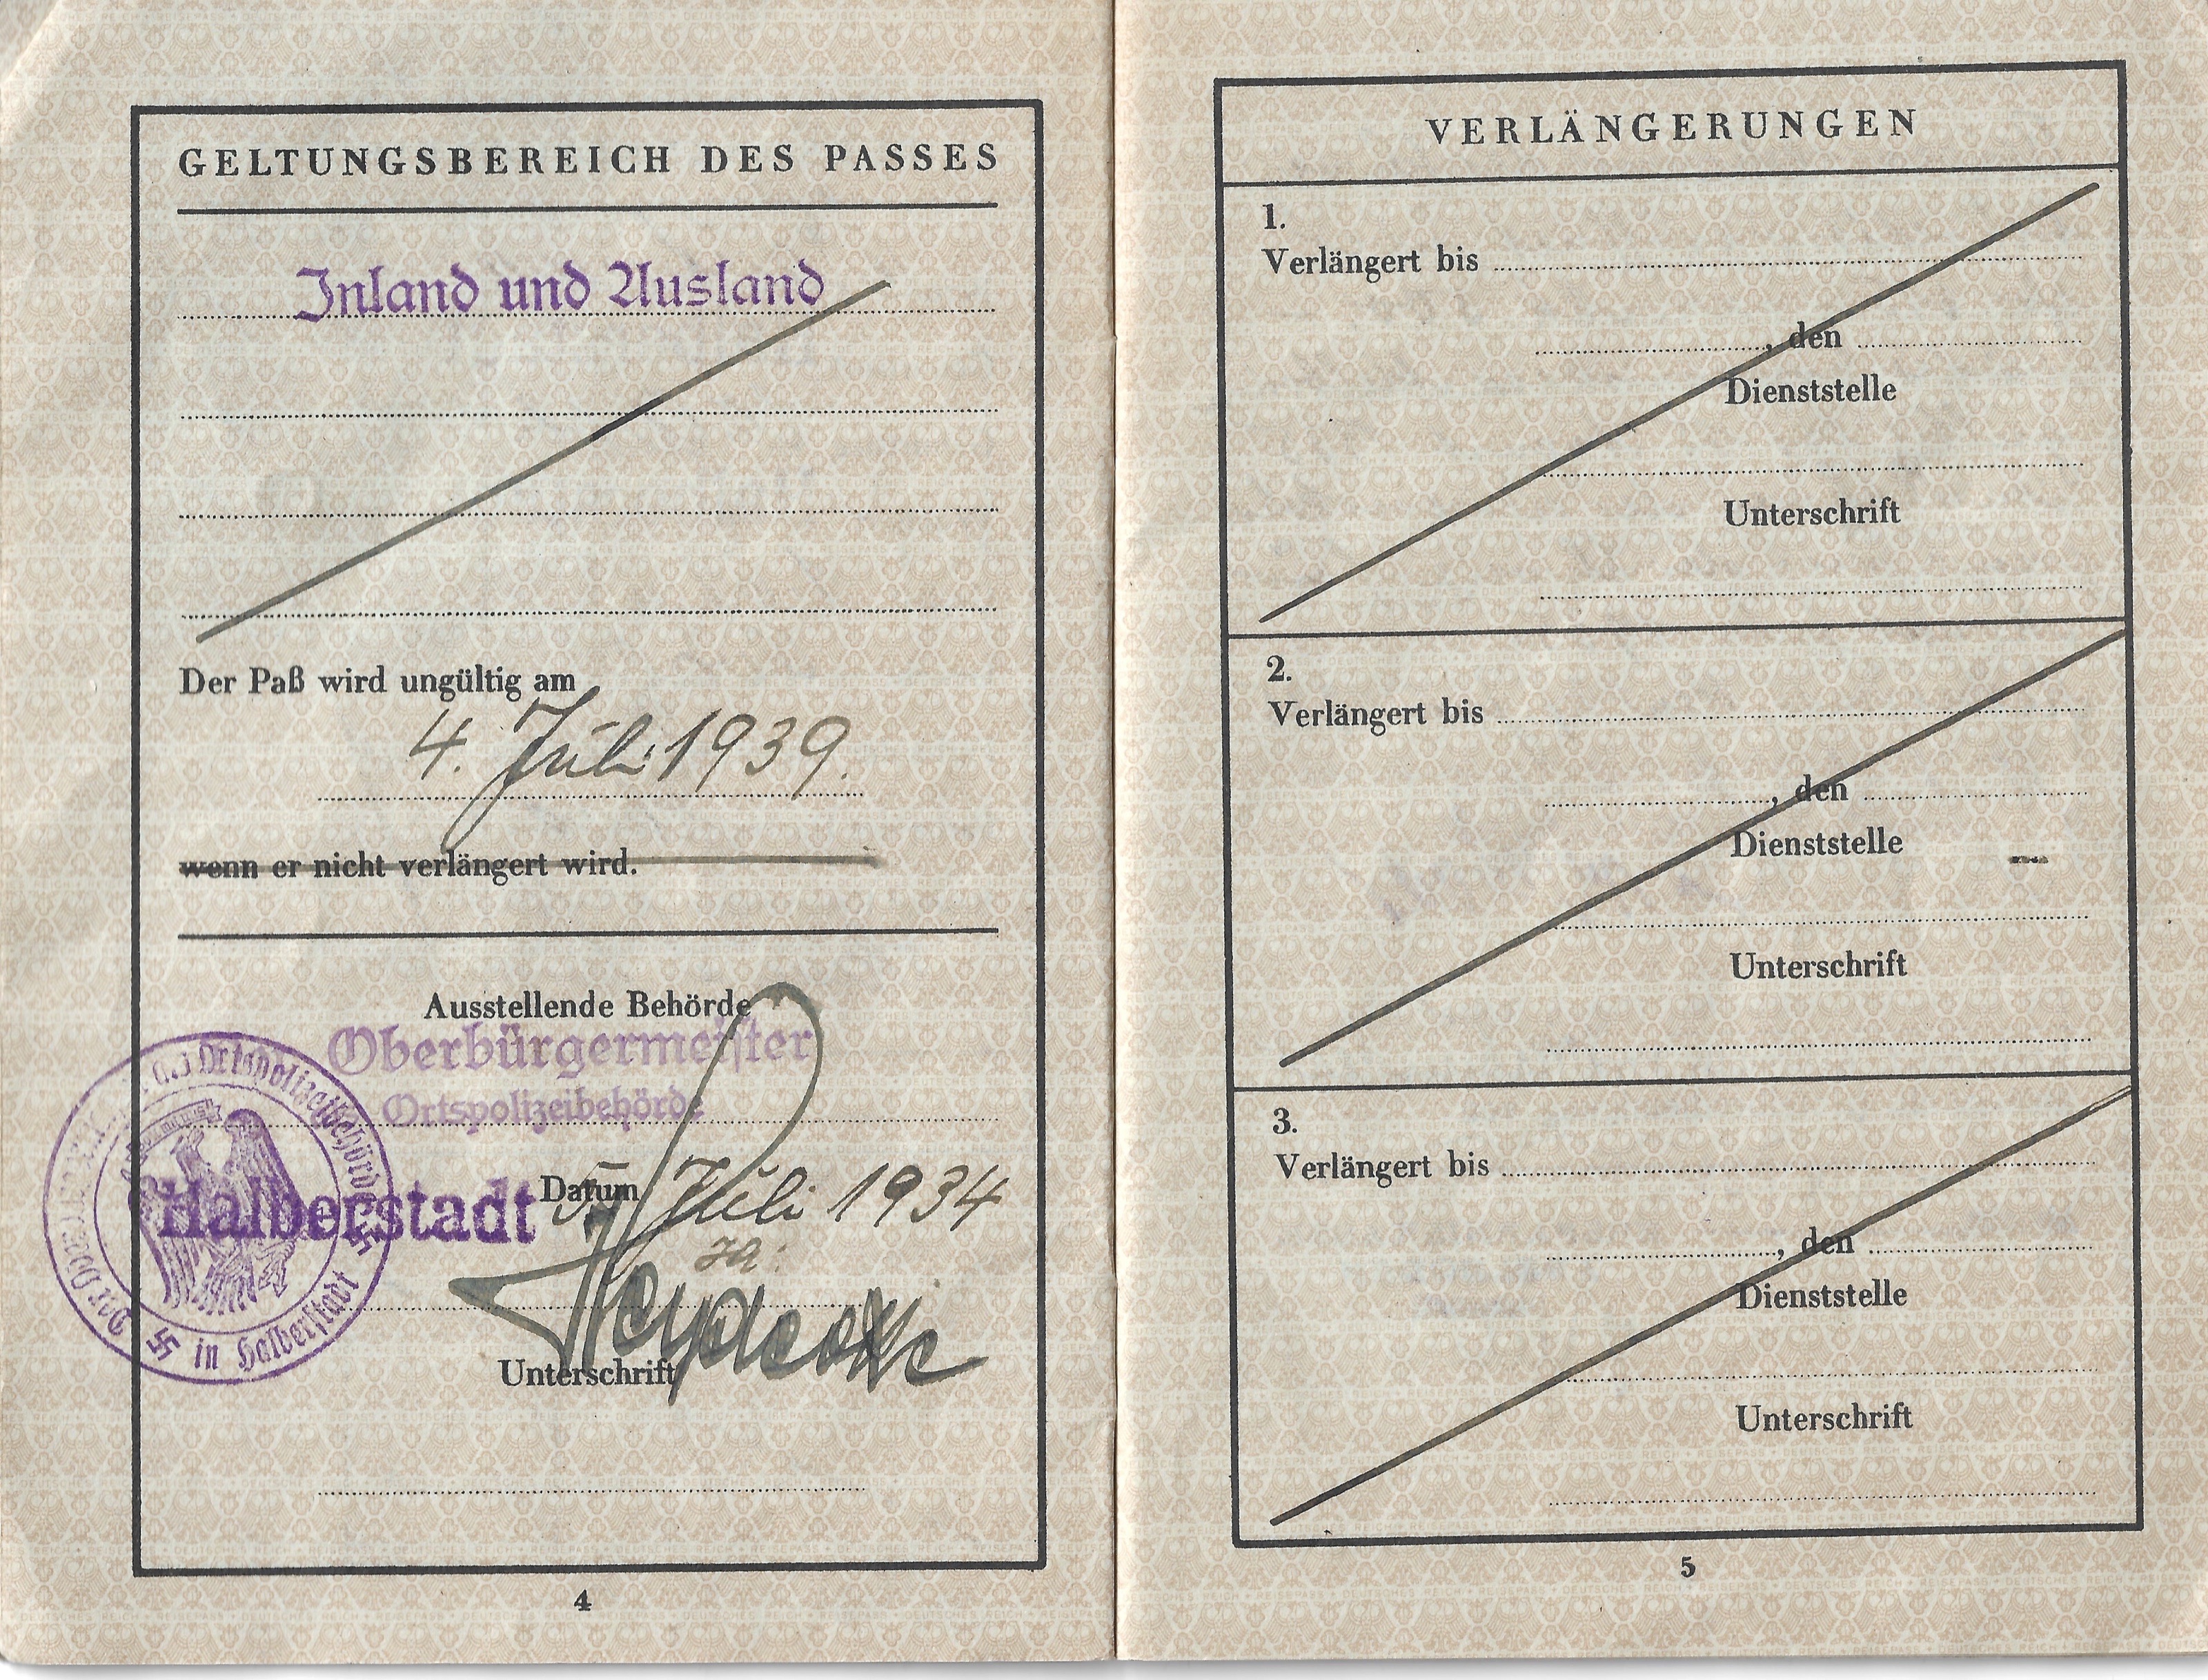 GELTUNGSBEREICH DES PASSES
Inland und Ausland
Der Paß wird ungültig am
4. Juli 1939.
wenn er nicht verlängert wird.
Ausstellende Behörde
Oberbürgermeister
Ortspolizeibehörde
Halberstadt
Datum 5. Juli 1934
Unterschrift
Ortspolizeibehörde
in Halberstadt
4
VERLÄNGERUNGEN
1.
Verlängert bis
, den
Dienststelle
Unterschrift
2.
Verlängert bis
, den
Dienststelle
Unterschrift
3.
Verlängert bis
, den
Dienststelle
Unterschrift
5